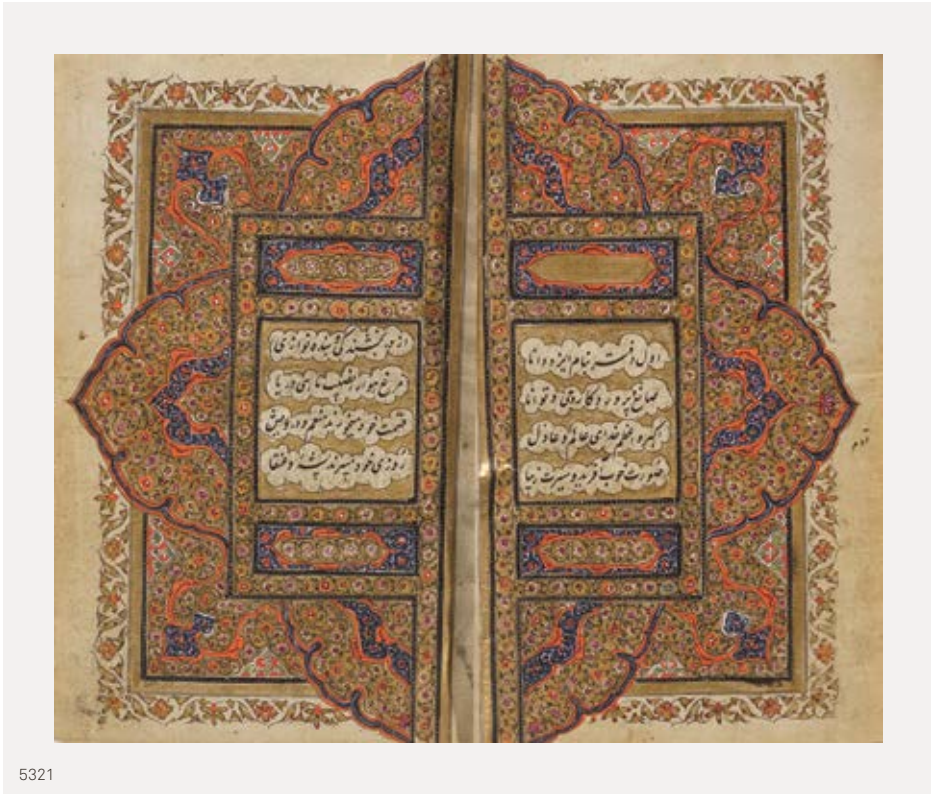 اول دفتر بنام ایزد دانا
صانع پروردگار و حی و توانا
اکبر و اعظم خدای عالم و عادل
صورت خوب آفرید و سیرت زیبا
آدم
از در بخشندگی و بنده نوازی
مرغ هوا را نصیب ماهی دریا
قسمت خود میخورند منعم و درویش
روزی خود میبرند پشه و عنقا
5321